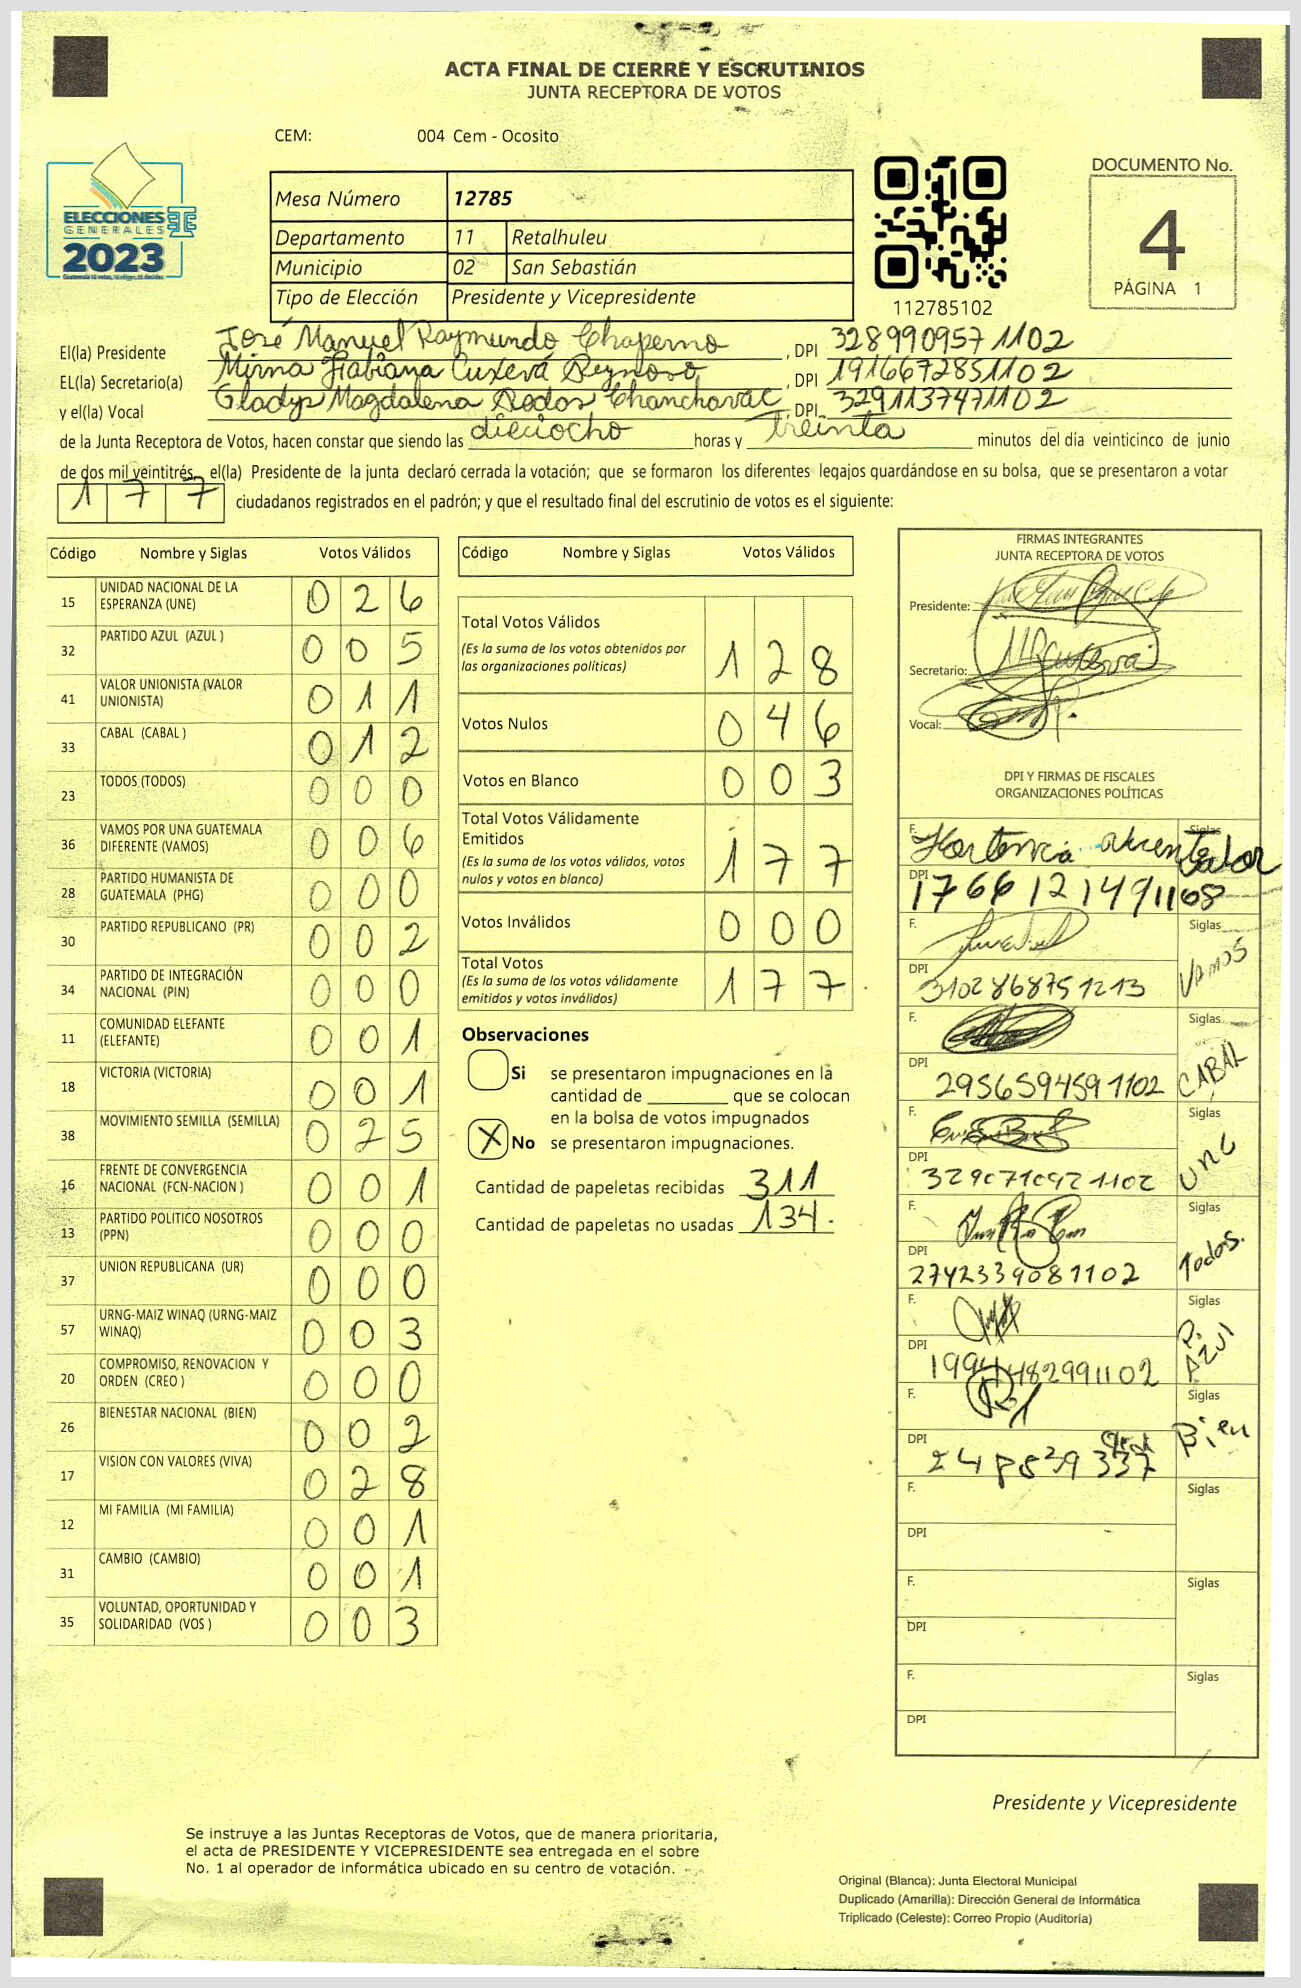 ACTA FINAL DE CIERRE Y ESCRUTINIOS
JUNTA RECEPTORA DE VOTOS
CEM: 004 Cem - Ocosito
ELECCIONES
GENERALES
2023
Mesa Número 12785
Departamento 11 Retalhuleu
Municipio 02 San Sebastián
Tipo de Elección Presidente y Vicepresidente
112785102
DOCUMENTO No.
4
PÁGINA 1
El(la) Presidente José Manuel Raymundo Chaperno, DPI 3289909571102
EL(la) Secretario(a) Mirna Fabiana Cuxevá Reynoso, DPI 1916672851102
y el(la) Vocal Gladys Magdalena Chanchavac, DPI 3291137471102
de la Junta Receptora de Votos, hacen constar que siendo las dieciocho horas y treinta minutos del día veinticinco de junio
de dos mil veintitrés, el(la) Presidente de la junta declaró cerrada la votación; que se formaron los diferentes legajos guardándose en su bolsa, que se presentaron a votar
177 ciudadanos registrados en el padrón; y que el resultado final del escrutinio de votos es el siguiente:
Código Nombre y Siglas Votos Válidos
15 UNIDAD NACIONAL DE LA ESPERANZA (UNE) 026
32 PARTIDO AZUL (AZUL ) 005
41 VALOR UNIONISTA (VALOR UNIONISTA) 011
33 CABAL (CABAL ) 012
23 TODOS (TODOS) 000
36 VAMOS POR UNA GUATEMALA DIFERENTE (VAMOS) 006
28 PARTIDO HUMANISTA DE GUATEMALA (PHG) 000
30 PARTIDO REPUBLICANO (PR) 002
34 PARTIDO DE INTEGRACIÓN NACIONAL (PIN) 000
11 COMUNIDAD ELEFANTE (ELEFANTE) 001
18 VICTORIA (VICTORIA) 001
38 MOVIMIENTO SEMILLA (SEMILLA) 025
16 FRENTE DE CONVERGENCIA NACIONAL (FCN-NACION ) 001
13 PARTIDO POLITICO NOSOTROS (PPN) 000
37 UNION REPUBLICANA (UR) 000
57 URNG-MAIZ WINAQ (URNG-MAIZ WINAQ) 003
20 COMPROMISO, RENOVACION Y ORDEN (CREO ) 000
26 BIENESTAR NACIONAL (BIEN) 002
17 VISION CON VALORES (VIVA) 028
12 MI FAMILIA (MI FAMILIA) 001
31 CAMBIO (CAMBIO) 001
35 VOLUNTAD, OPORTUNIDAD Y SOLIDARIDAD (VOS ) 003
Código Nombre y Siglas Votos Válidos
Total Votos Válidos 128
(Es la suma de los votos obtenidos por
las organizaciones políticas)
Votos Nulos 046
Votos en Blanco 003
Total Votos Válidamente
Emitidos 177
(Es la suma de los votos válidos, votos
nulos y votos en blanco)
Votos Inválidos 000
Total Votos 177
(Es la suma de los votos válidamente
emitidos y votos inválidos)
Observaciones
Si se presentaron impugnaciones en la
cantidad de ________ que se colocan
en la bolsa de votos impugnados
X No se presentaron impugnaciones.
Cantidad de papeletas recibidas 311
Cantidad de papeletas no usadas 134.
FIRMAS INTEGRANTES
JUNTA RECEPTORA DE VOTOS
Presidente:
Secretario:
Vocal:
DPI Y FIRMAS DE FISCALES
ORGANIZACIONES POLÍTICAS
F. Hortencia Siglas Valor
DPI 1766121491108
F. Siglas VAMOS
DPI 3102868751213
F. Siglas CABAL
DPI 2956594591102
F. Siglas UNE
DPI 3290710921102
F. Siglas Todos.
DPI 2742339081102
F. Siglas P. AZUL
DPI 1994482991102
F. Siglas Bien
DPI
F. Siglas
DPI
F. Siglas
DPI
F. Siglas
DPI
Presidente y Vicepresidente
Se instruye a las Juntas Receptoras de Votos, que de manera prioritaria,
el acta de PRESIDENTE Y VICEPRESIDENTE sea entregada en el sobre
No. 1 al operador de informática ubicado en su centro de votación.
Original (Blanca): Junta Electoral Municipal
Duplicado (Amarilla): Dirección General de Informática
Triplicado (Celeste): Correo Propio (Auditoría)